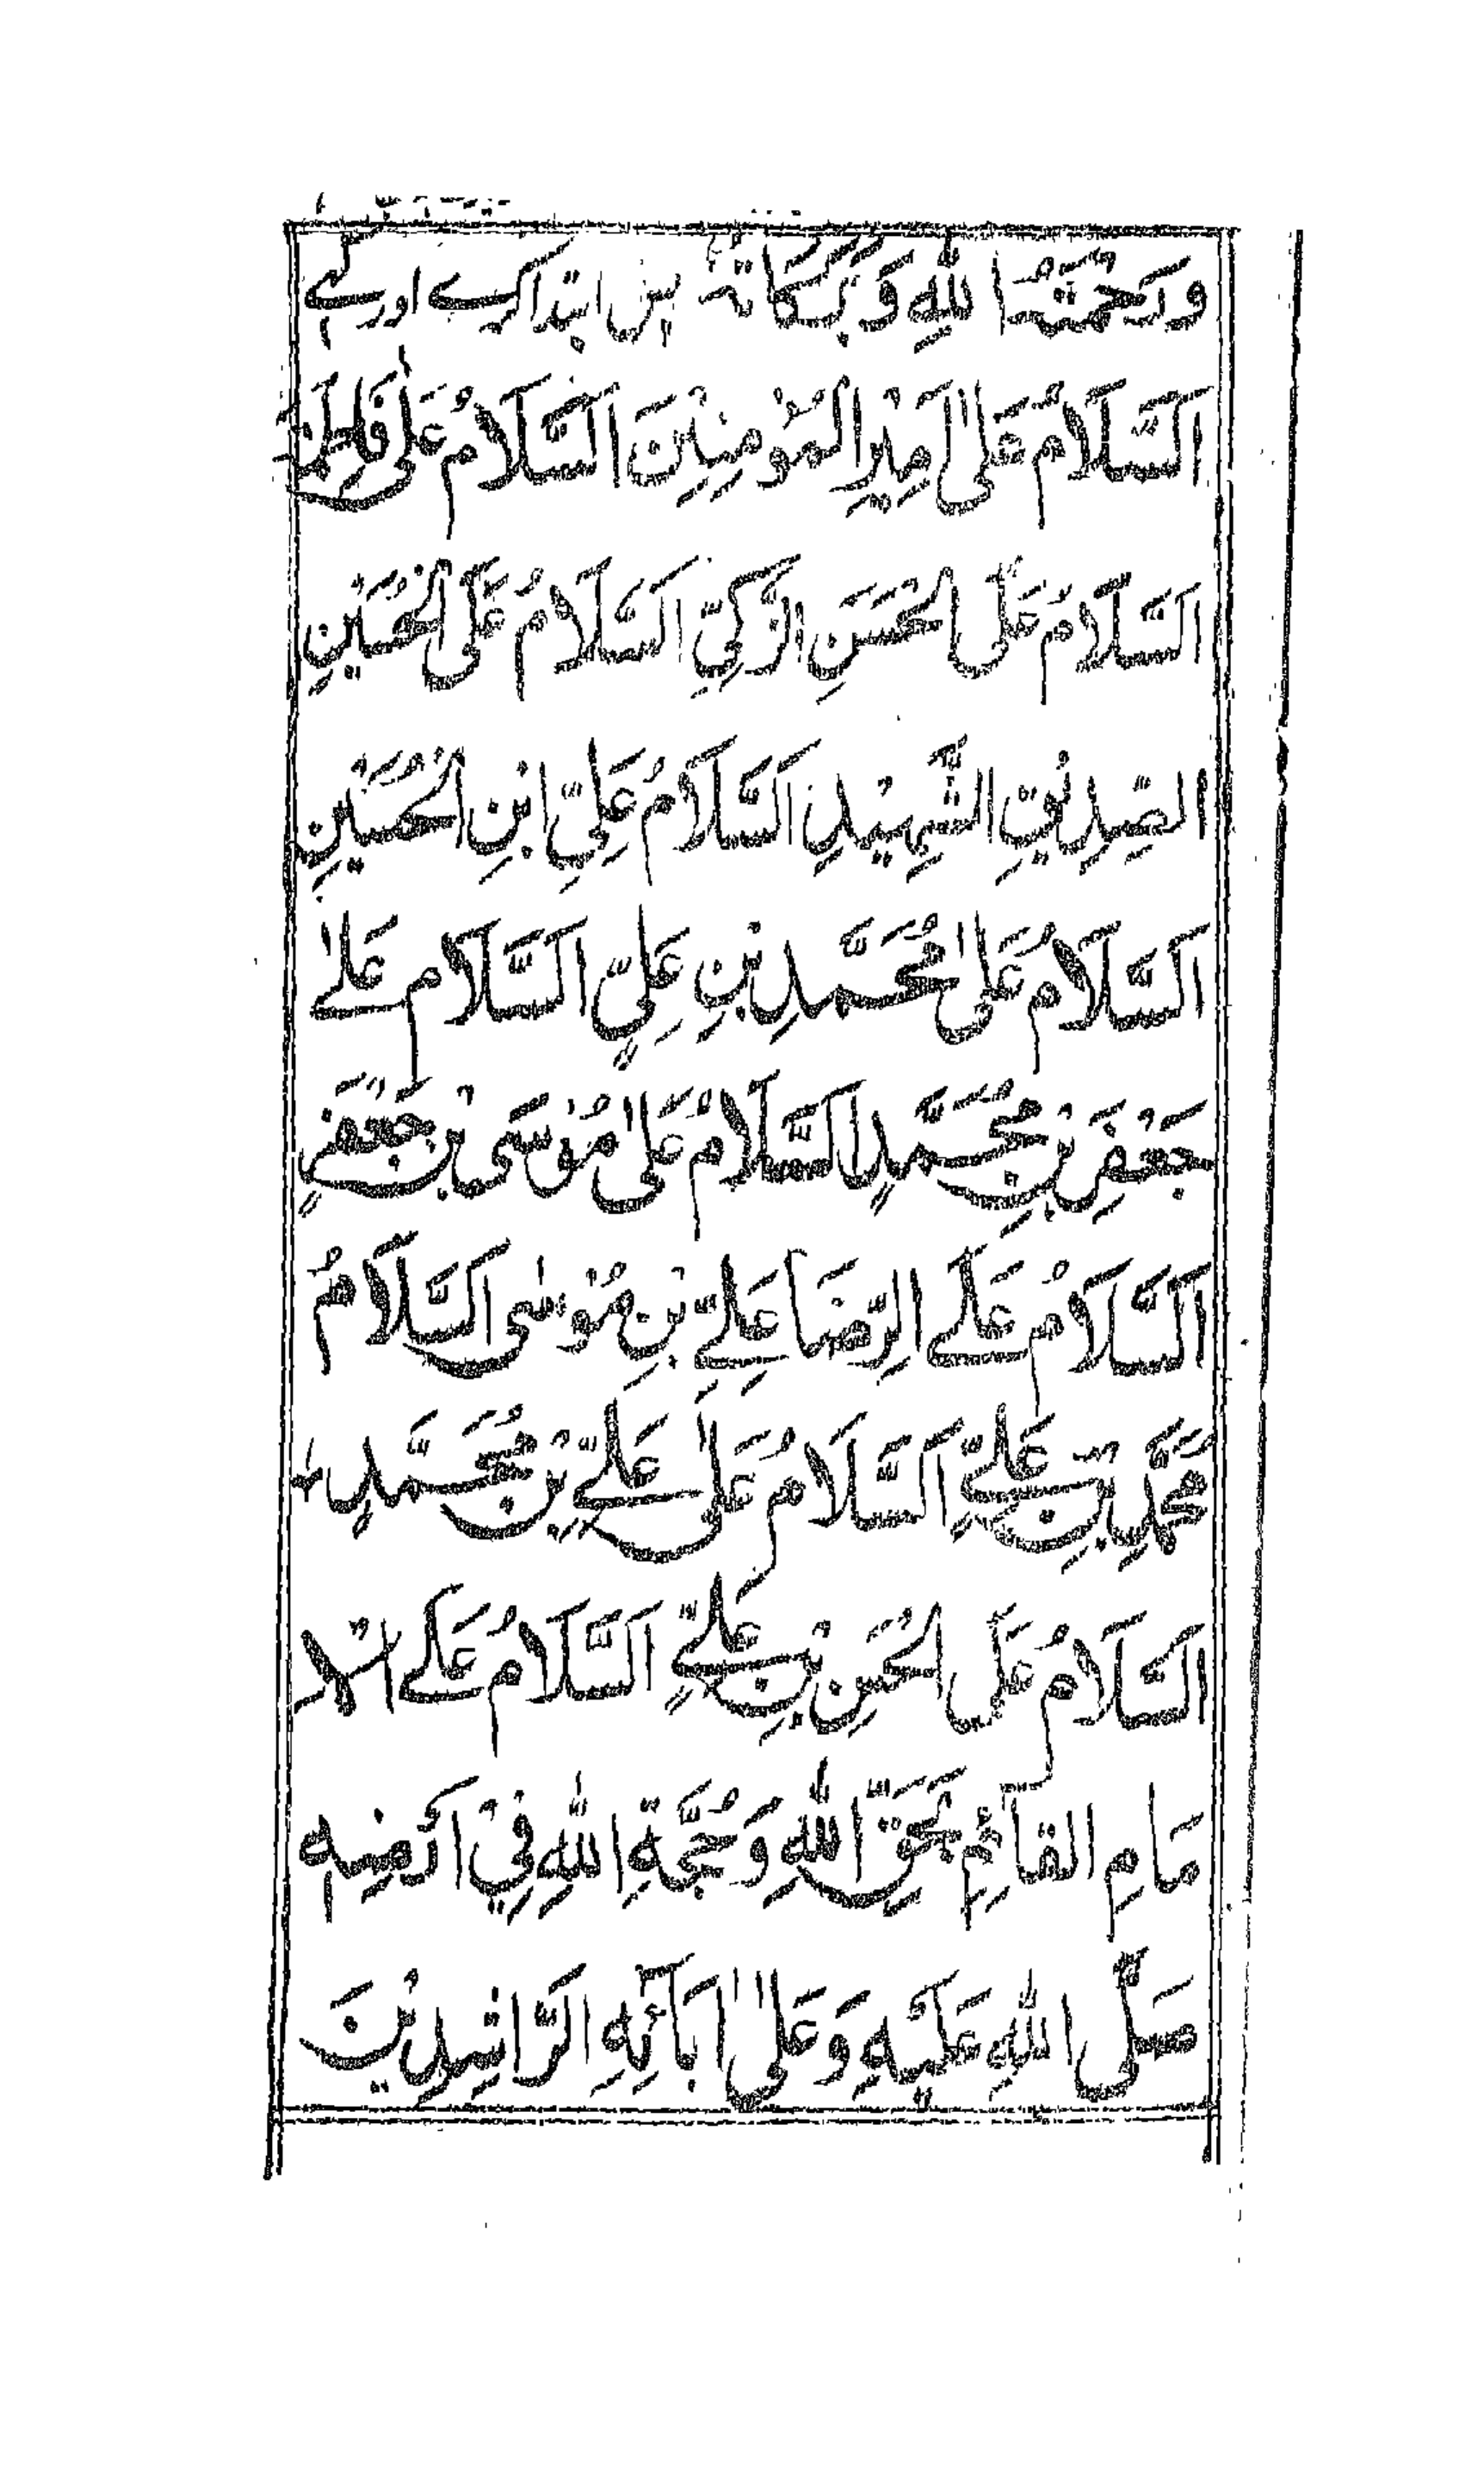 وَرَحْمَتُ اللهِ وَبَرَكَاتُهُ پس ابتدا کرے اور کہے
اَلسَّلَامُ عَلٰى اَمِيْرِ الْمُؤْمِنِيْنَ اَلسَّلَامُ عَلٰى فَاطِمَةَ
اَلسَّلَامُ عَلَى الْحَسَنِ الزَّكِيِّ اَلسَّلَامُ عَلَى الْحُسَيْنِ
الصِّدِيْقِ الشَّهِيْدِ اَلسَّلَامُ عَلِيِّ ابْنِ الْحُسَيْنِ
اَلسَّلَامُ عَلٰى مُحَمَّدِ بْنِ عَلِيٍّ اَلسَّلَام عَلٰے
جَعْفَرِ بْنِ مُحَمَّدٍ اَلسَّلَامُ عَلٰى مُوْسَى بْنِ جَعْفَرٍ
اَلسَّلَامُ عَلَے الرِّضَا عَلِےِّ بْنِ مُوْسٰى اَلسَّلَامُ
مُحَمَّدِ بْنِ عَلِےٍّ اَلسَّلَامُ عَلٰى عَلِےِّ بْنِ مُحَمَّدٍ
اَلسَّلَامُ عَلَى الْحَسَنِ بْنِ عَلِےٍّ اَلسَّلَامُ عَلَے الْاِ
مَامِ القَائِمِ بِحَقِّ اللهِ وَحُجَّةِ اللهِ فِيْ اَرْضِهٖ
صَلَّى اللهِ عَلَيْهِ وَعَلٰى اٰبَآئِهِ الرَّاشِدِيْنَ